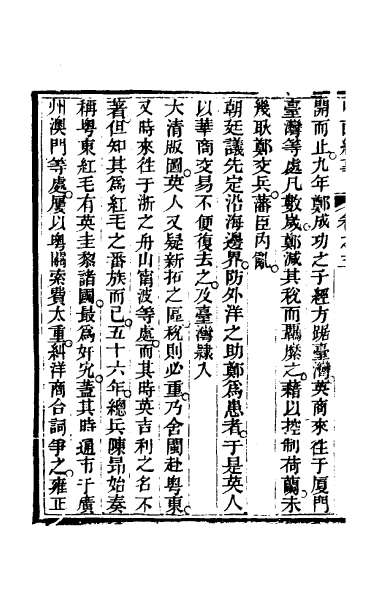 開而止九年鄭成功之子經方踞臺灣英商來往于厦門
臺灣等處凡數歲鄭減其稅而羈縻之藉以控制荷蘭未
幾耿鄭交兵藩臣内亂
朝廷議先定沿海邊界防外洋之助鄭爲患者于是英人
以華商交易不便復去之及臺灣隸入
大清版圖英人又疑新拓之區稅則必重乃舍閩赴粤東
又時來往于浙之舟山甯波等處而其時英吉利之名不
著但知其爲紅毛之番族而已五十六年總兵陳昂始奏
稱粤東紅毛有英圭黎諸國最爲奸宄蓋其時通市于廣
州澳門等處屢以粤關索費太重糾洋商合詞爭之雍正